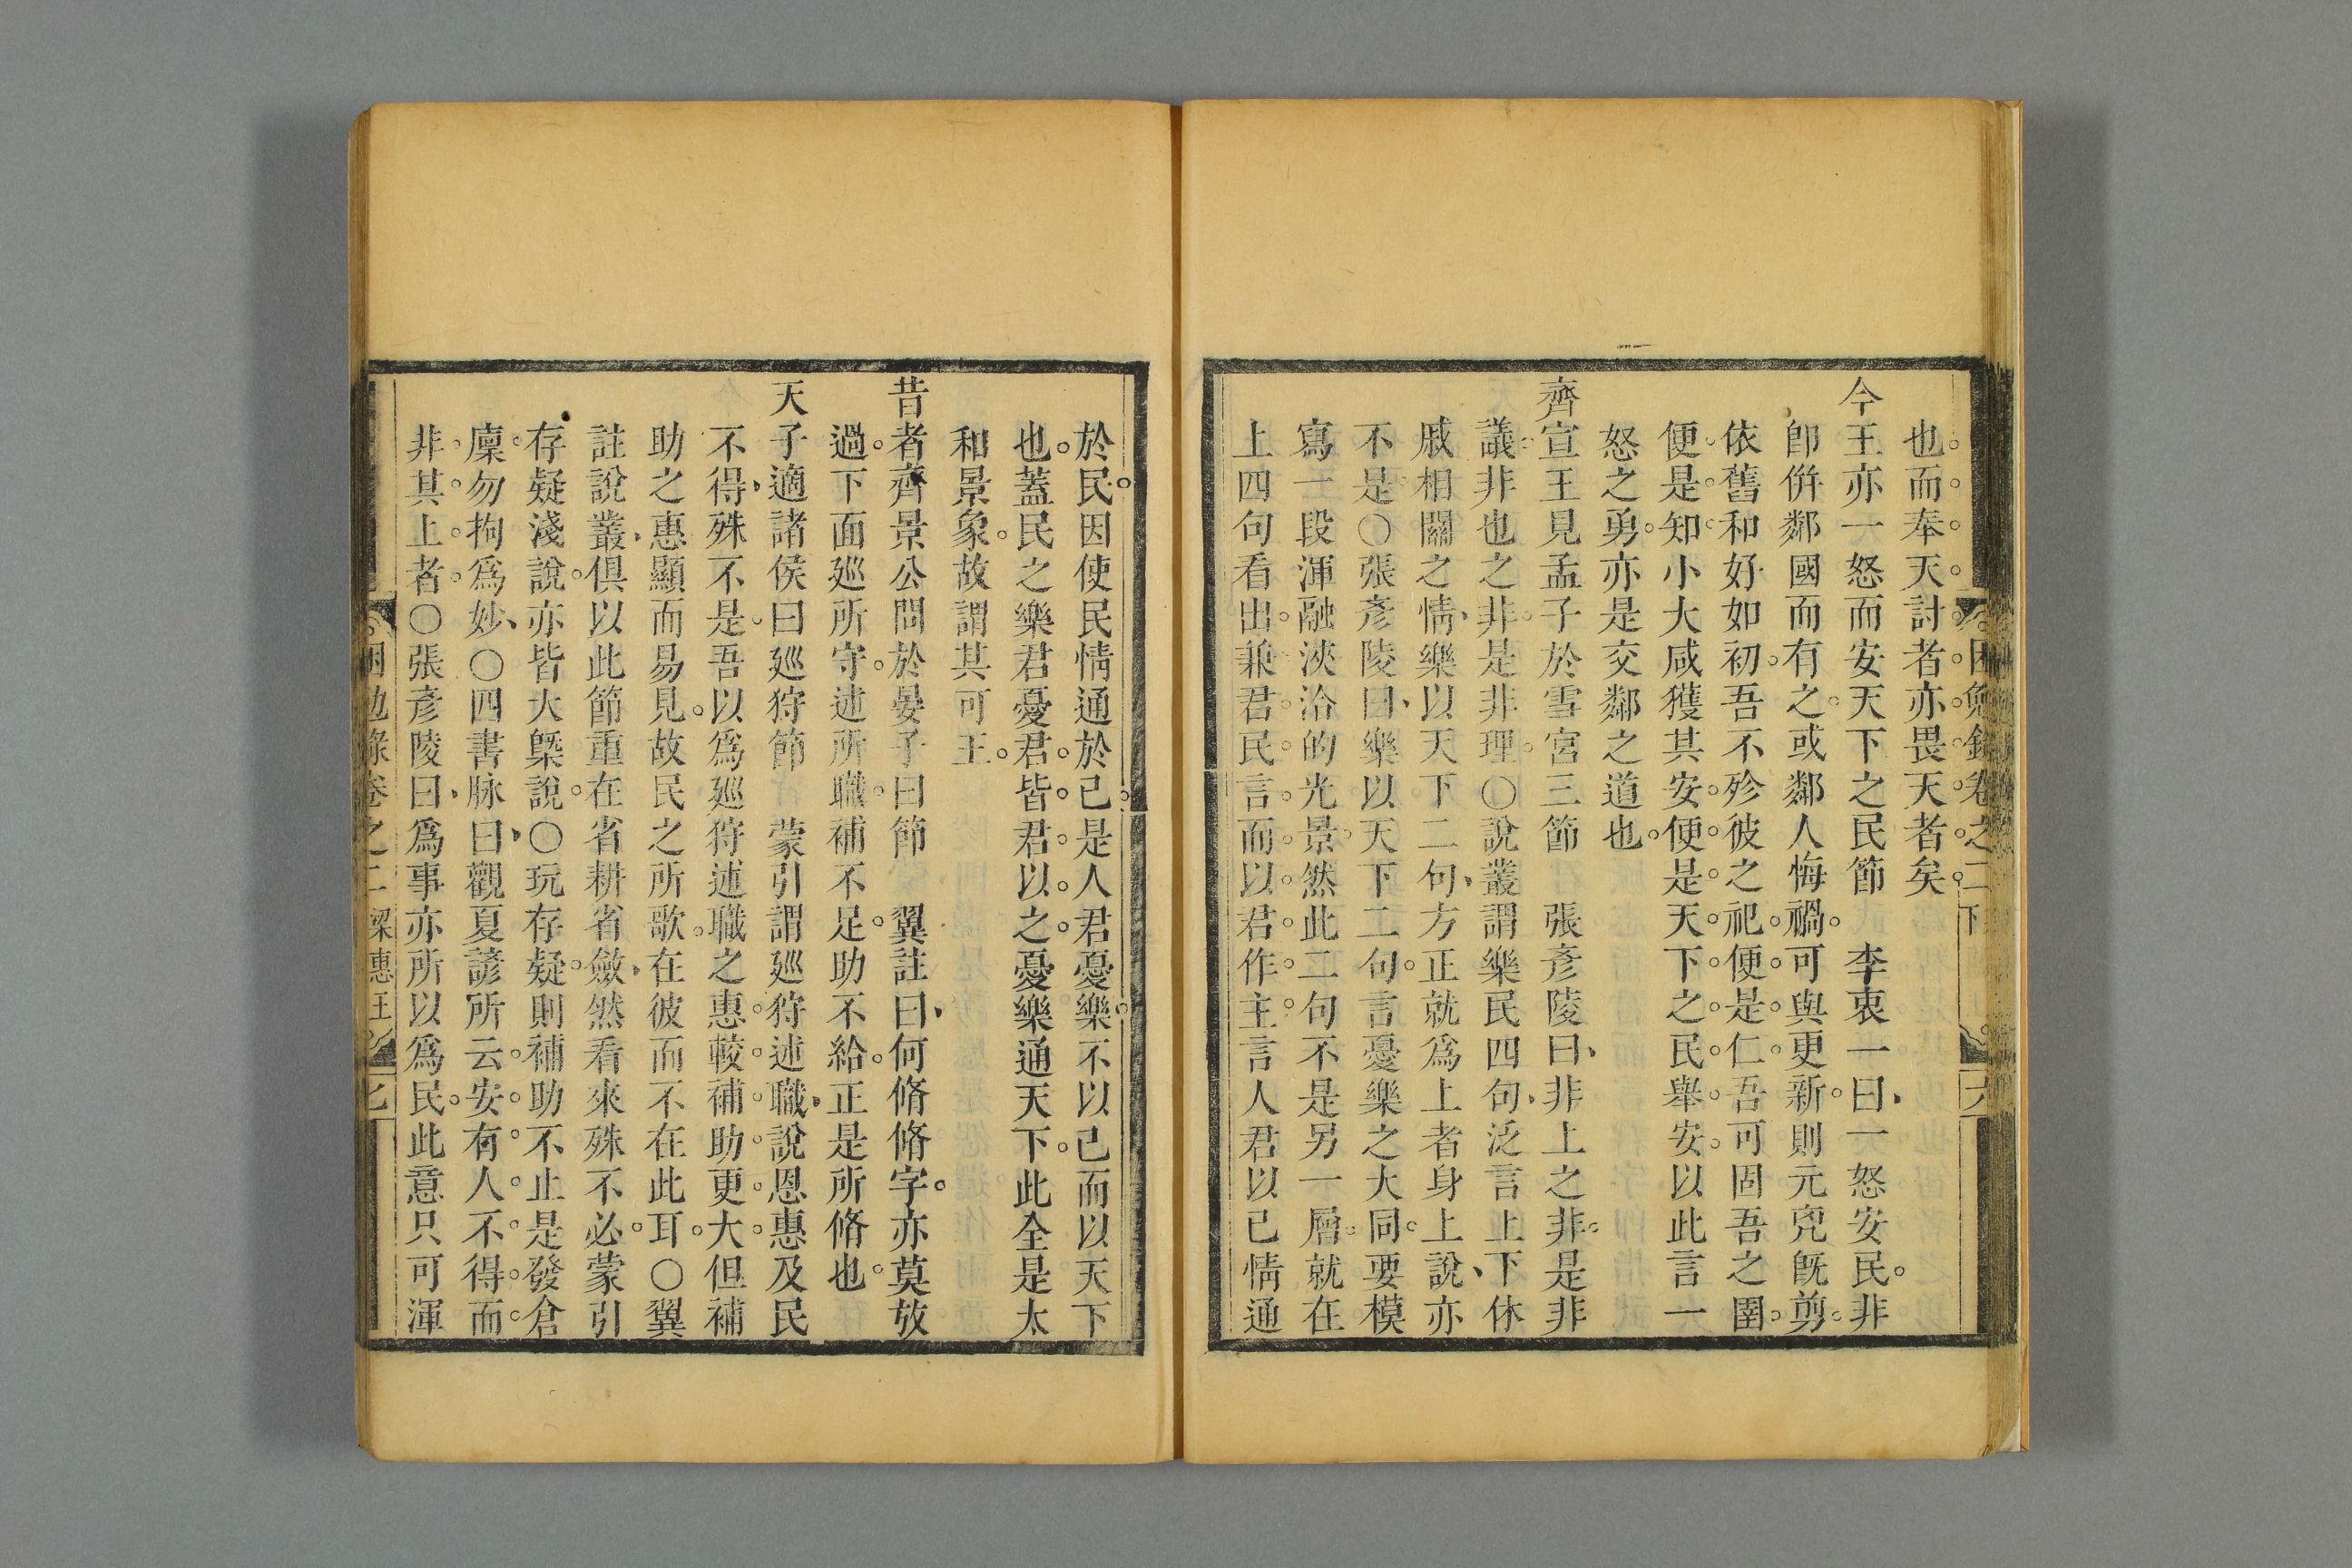 也而奉天討者亦畏天者矣
今王亦一怒而安天下之民節　李衷一曰一怒安民非
卽倂鄰國而有之或鄰人悔禍可與更新則元兇旣剪
依舊和好如初吾不殄彼之祀便是仁吾可固吾之圉
便是知小大咸獲其安便是天下之民舉安以此言一
怒之勇亦是交鄰之道也
齊宣王見孟子於雪宮三節　張彥陵曰非上之非是非
議非也之非是非理〇說叢謂樂民四句泛言上下休
戚相關之情樂以天下二句方正就爲上者身上說亦
不是〇張彥陵曰樂以天下二句言憂樂之大同要模
寫一段渾融浹洽的光景然此二句不是另一層就在
上四句看出兼君民言而以君作主言人君以己情通
於民因使民情通於己是人君憂樂不以己而以天下
也蓋民之樂君憂君皆君以之憂樂通天下此全是太
和景象故謂其可王
昔者齊景公問於晏子曰節　翼註曰何脩脩字亦莫放
過下面廵所守述所職補不足助不給正是所脩也
天子適諸侯曰廵狩節　蒙引謂廵狩述職說恩惠及民
不得殊不是吾以爲廵狩述職之惠較補助更大但補
助之惠顯而易見故民之所歌在彼而不在此耳〇翼
註說叢俱以此節重在省耕省斂然看來殊不必蒙引
存疑淺說亦皆大槩說〇玩存疑則補助不止是發倉
廩勿拘爲妙〇四書脉曰觀夏諺所云安有人不得而
非其上者〇張彥陵曰爲事亦所以爲民此意只可渾
困勉錄卷之二 梁惠王 七